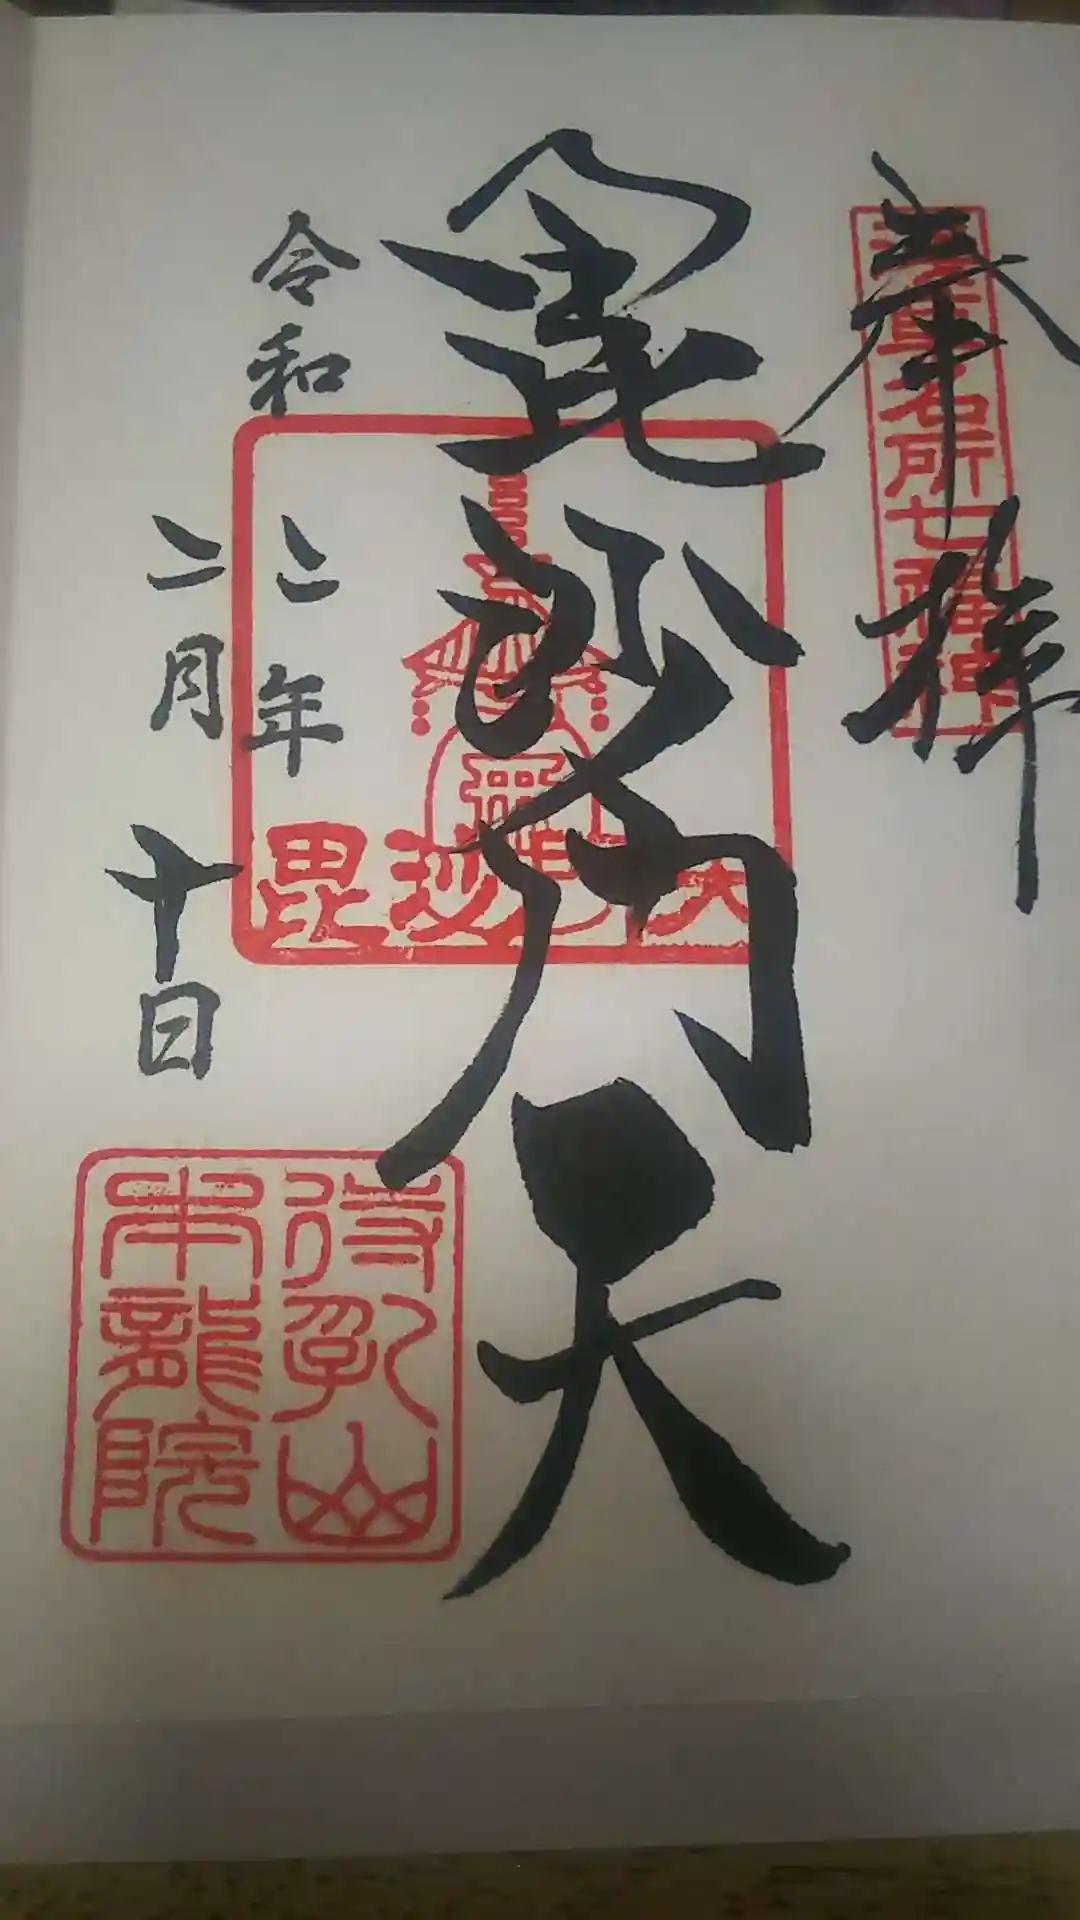 奉拝
浅草名所七福神
毘沙門天
毘沙門天
令和二年
二月十日
待乳山
本龍院